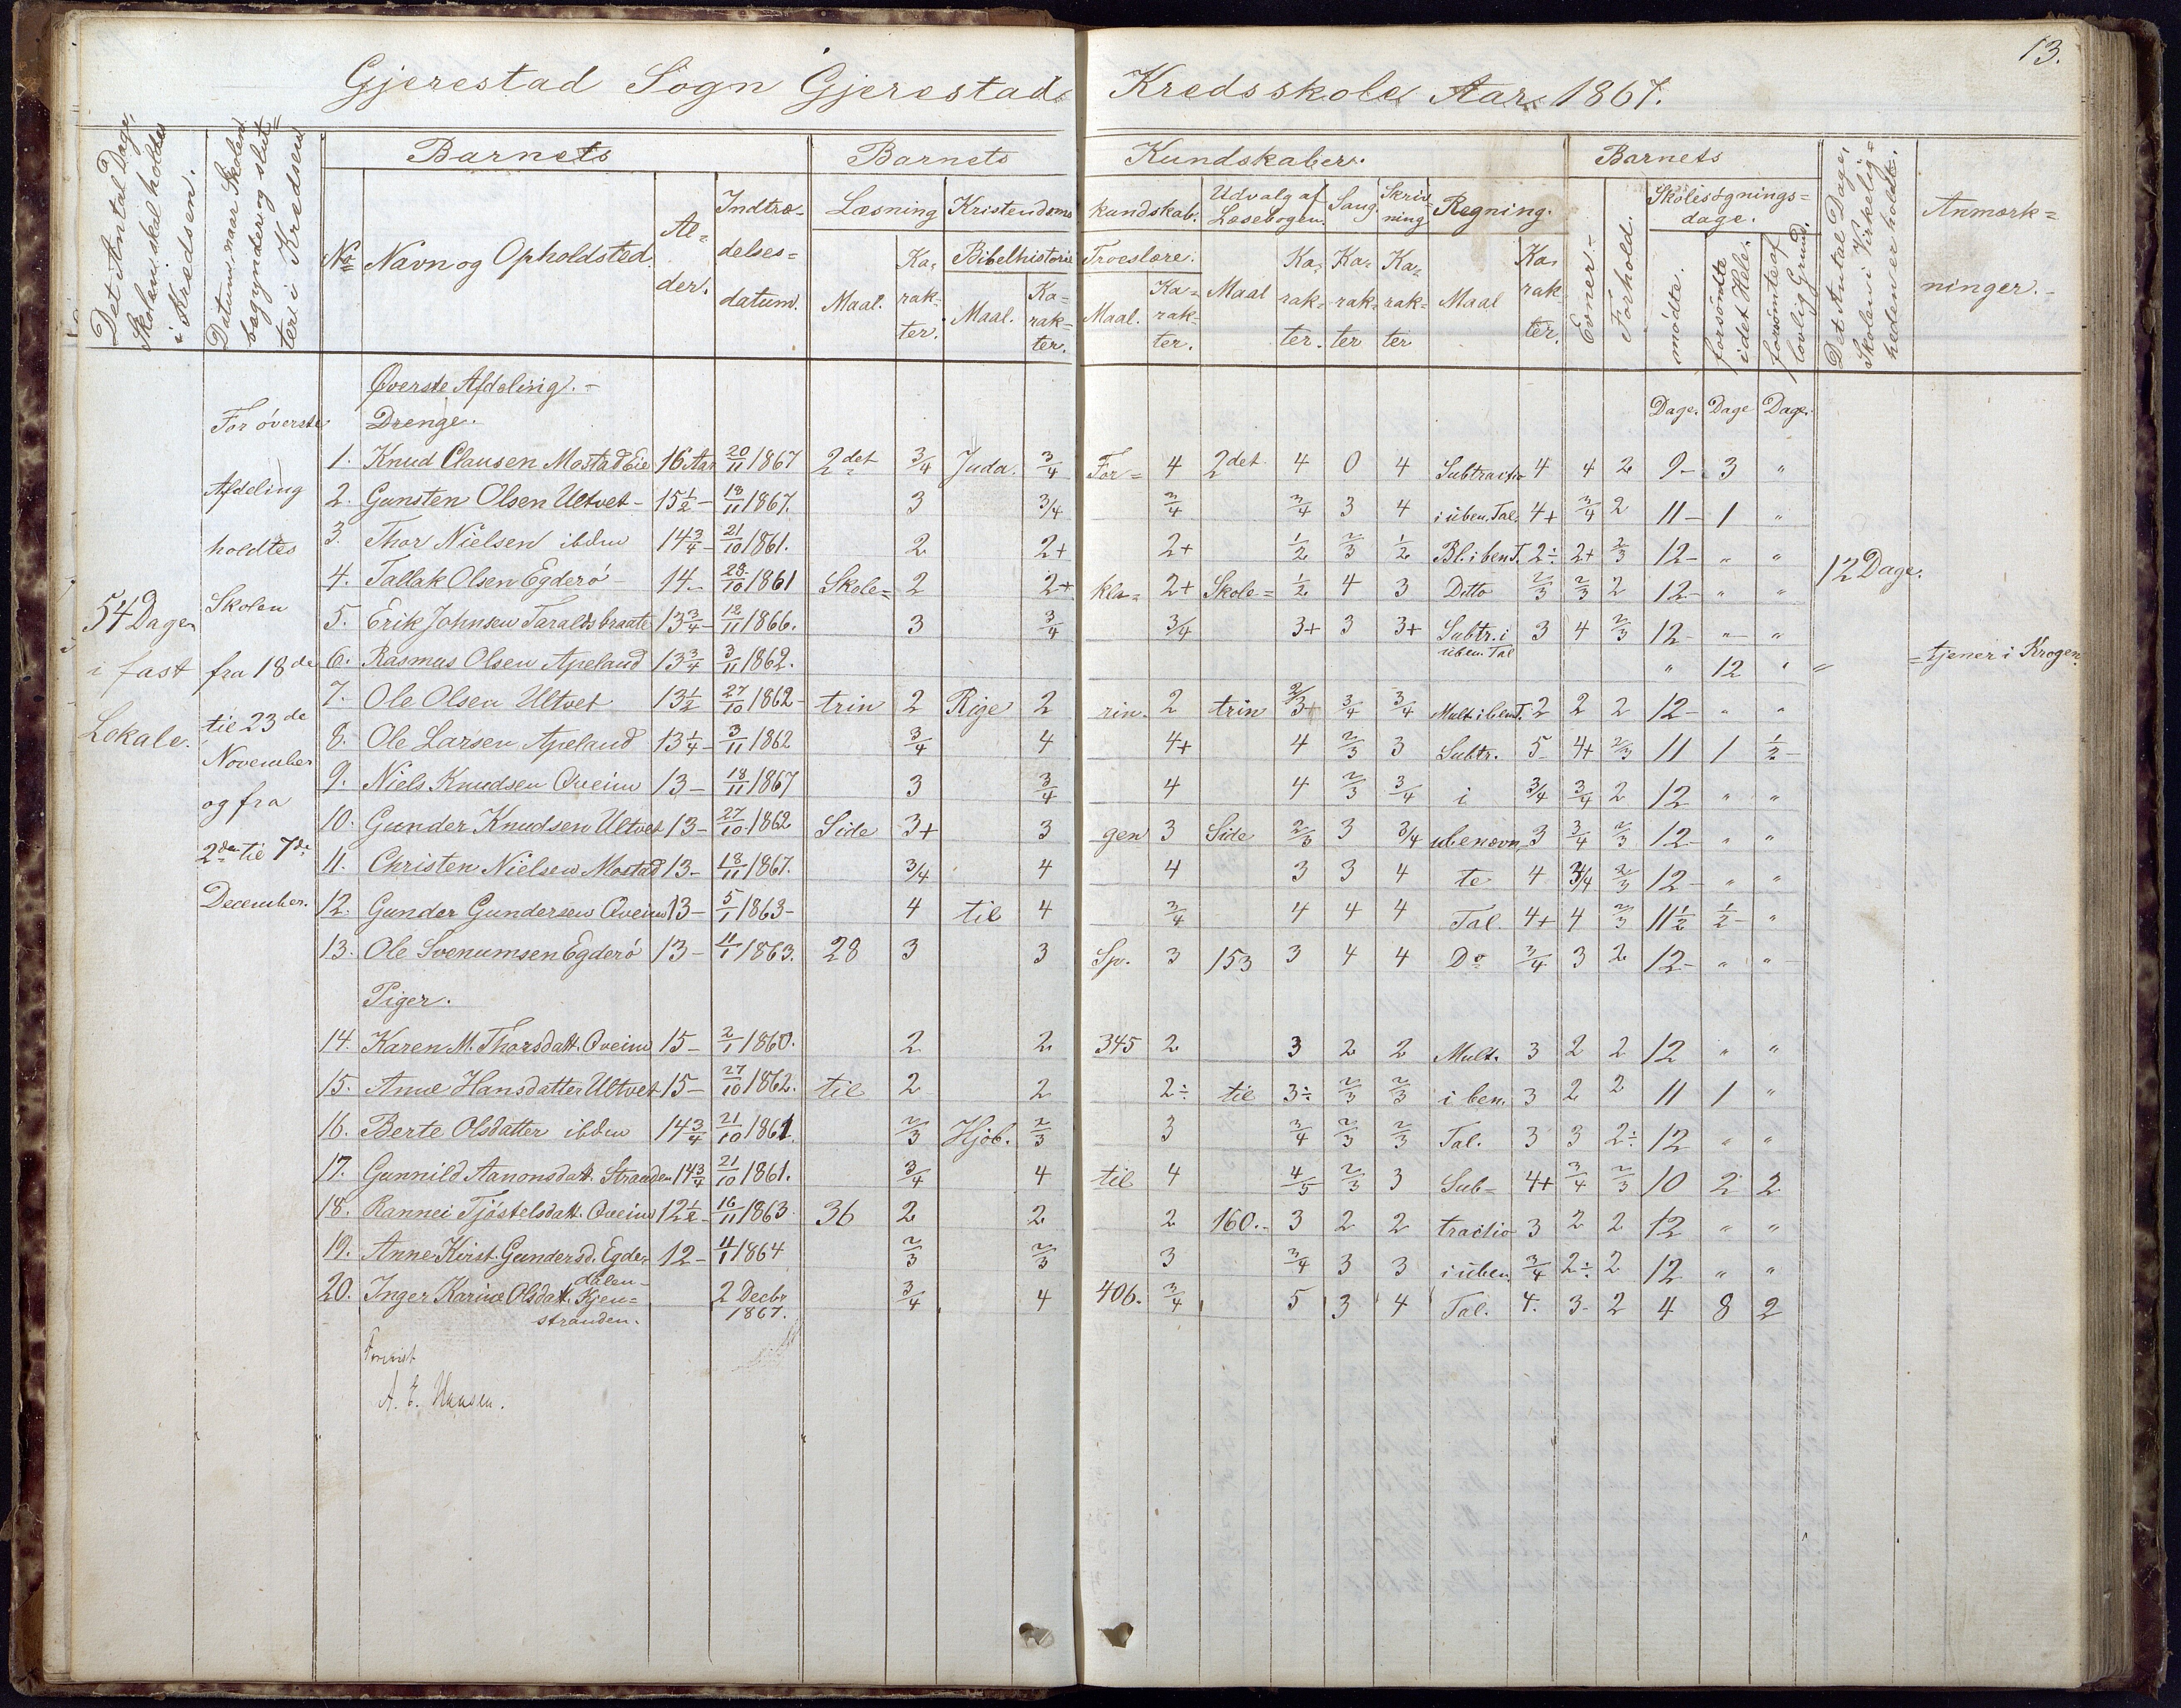 13.
Gjerestad Sogn Gjerestads Kredsskole Aar 1867.
Det Antal Dage, Skolen skal holdes i Kredsen.
Datum, naar Skolen begynder og slutter i Kredsen
Barnets
Barnets Kundskaber.
Barnets
Det Antal Dage, Skolen i Virkeligheden er holdt.
Anmærkninger.
No Navn og Opholdsted. Alder. Indtrædelsesdatum.
Læsning Kristendomskundskab. Udvalg af Læsebogen. Sang. Skrivning Regning.
Maal. Karakter. Bibelhistorie Maal. Karakter. Troeslære. Maal. Karakter. Maal Karakter. Karakter Karakter Maal Karakter.
Evner. Forhold. Skolesøgningsdage. mødte. forsømte i det Hele. forsømte af lovlig Grund.
Øverste Afdeling.
Drenge.
Dage. Dage Dage.
54 Dage i fast Lokale.
For øverste Afdeling holdtes Skolen fra 18de til 23de November og fra 2den til 7de December.
12 Dage.
1. Knud Clausen Mostad Eie 16 Aar 20/11 1867 2det 3/4 Juda. 3/4 For= 4 2det 4 0 4 Subtractio 4 4 2 9- 3 "
2. Gunsten Olsen Ultvet- 15 1/2- 18/11 1867. 3 3/4 3/4 3/4 3 4 i uben. Tal. 4+ 3/4 2 11- 1 "
3. Thor Nielsen ibdm 14 3/4- 21/10 1861. 2 2+ 2+ 1/2 2/3 1/2 Bl. i ben T. 2÷ 2+ 2/3 12- " "
4. Tallak Olsen Egderö- 14- 28/10 1861 Skole= 2 2+ kla= 2+ Skole= 1/2 4 3 Ditto 2/3 2/3 2 12- " "
5. Erik Johnsen Taraldsbraate 13 3/4- 12/11 1866. 3 3/4 3/4 3+ 3 3+ Subtr. i uben. Tal 3 4 2/3 12- " "
6. Rasmus Olsen Apeland 13 3/4 3/11 1862. " 12 " " =tjener i Krogen.
7. Ole Olsen Ultvet 13 1/2 27/10 1862- trin 2 Rige 2 rin. 2 trin 2/3+ 3/4 3/4 Mult i ben T. 2 2 2 12- " "
8. Ole Larsen Apeland 13 1/4- 3/11 1862 3/4 4 4+ 4 2/3 3 Subtr. 5 4+ 2/3 11 1 1/2-
9. Niels Knudsen Qveim 13- 18/11 1867 3 3/4 4 4 2/3 3/4 i 3/4 3/4 2 12 " "
10. Gunder Knudsen Ultvet 13- 27/10 1862 Side 3+ 3 gen 3 Side 2/3 3 3/4 ubenævn= 3 3/4 2/3 12- " "
11. Christen Nielsen Mostad 13- 18/11 1867. 3/4 4 4 3 3 4 te 4 3/4 2/3 12- " "
12. Gunder Gundersen Qveim 13- 5/1 1863- 4 til 4 3/4 4 4 4 Tal. 4+ 4 2/3 11 1/2 1/2- "
13. Ole Svenumsen Egderö 13- 11/1 1863. 28 3 3 Sp. 3 153 3 4 4 Do 3/4 3 2 12- " "
Piger.
14. Karen M. Thorsdatt. Qveim 15- 2/1 1860. 2 2 345 2 3 2 2 Mult. 3 2 2 12 " "
15. Anne Hansdatter Ultvet 15- 27/10 1862. til 2 2 2÷ til 3÷ 2/3 2/3 i ben. 3 2 2 11 1 "
16. Berte Olsdatter ibdm 14 3/4 21/10 1861. 2/3 Hjob. 2/3 3 3/4 2/3 2/3 Tal. 3 3 2÷ 12 " "
17. Gunnild Aanonsdatt. Stranden 14 3/4 21/10 1861. 3/4 4 til 4 4/5 2/3 3 Sub= 4+ 3/4 2/3 10 2 2
18. Rannei Tjöstelsdatt. Qveim 12 1/2- 16/11 1863 36 2 2 2 160.- 3 2 2 tractio 3 2 2 12 " "
19. Anne Kirst. Gundersd. Egde=dalen- 12- 11/1 1864 2/3 2/3 3 3/4 3 3 i uben 3/4 2÷ 2 12 " "
20. Inger Karine Olsdatt. Kjen=stranden. 2 Decbr 1867. 3/4 4 406. 3/4 5 3 4 Tal. 4. 3- 2 4 8 2
Forevist
A. E. Hansen.